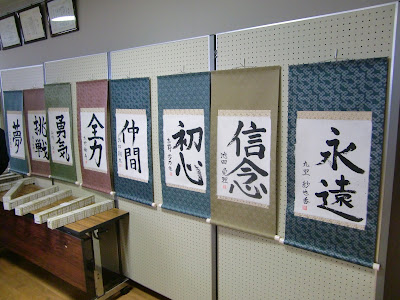 夢
挑戦
勇気
全力
仲間
初心
信念
永遠